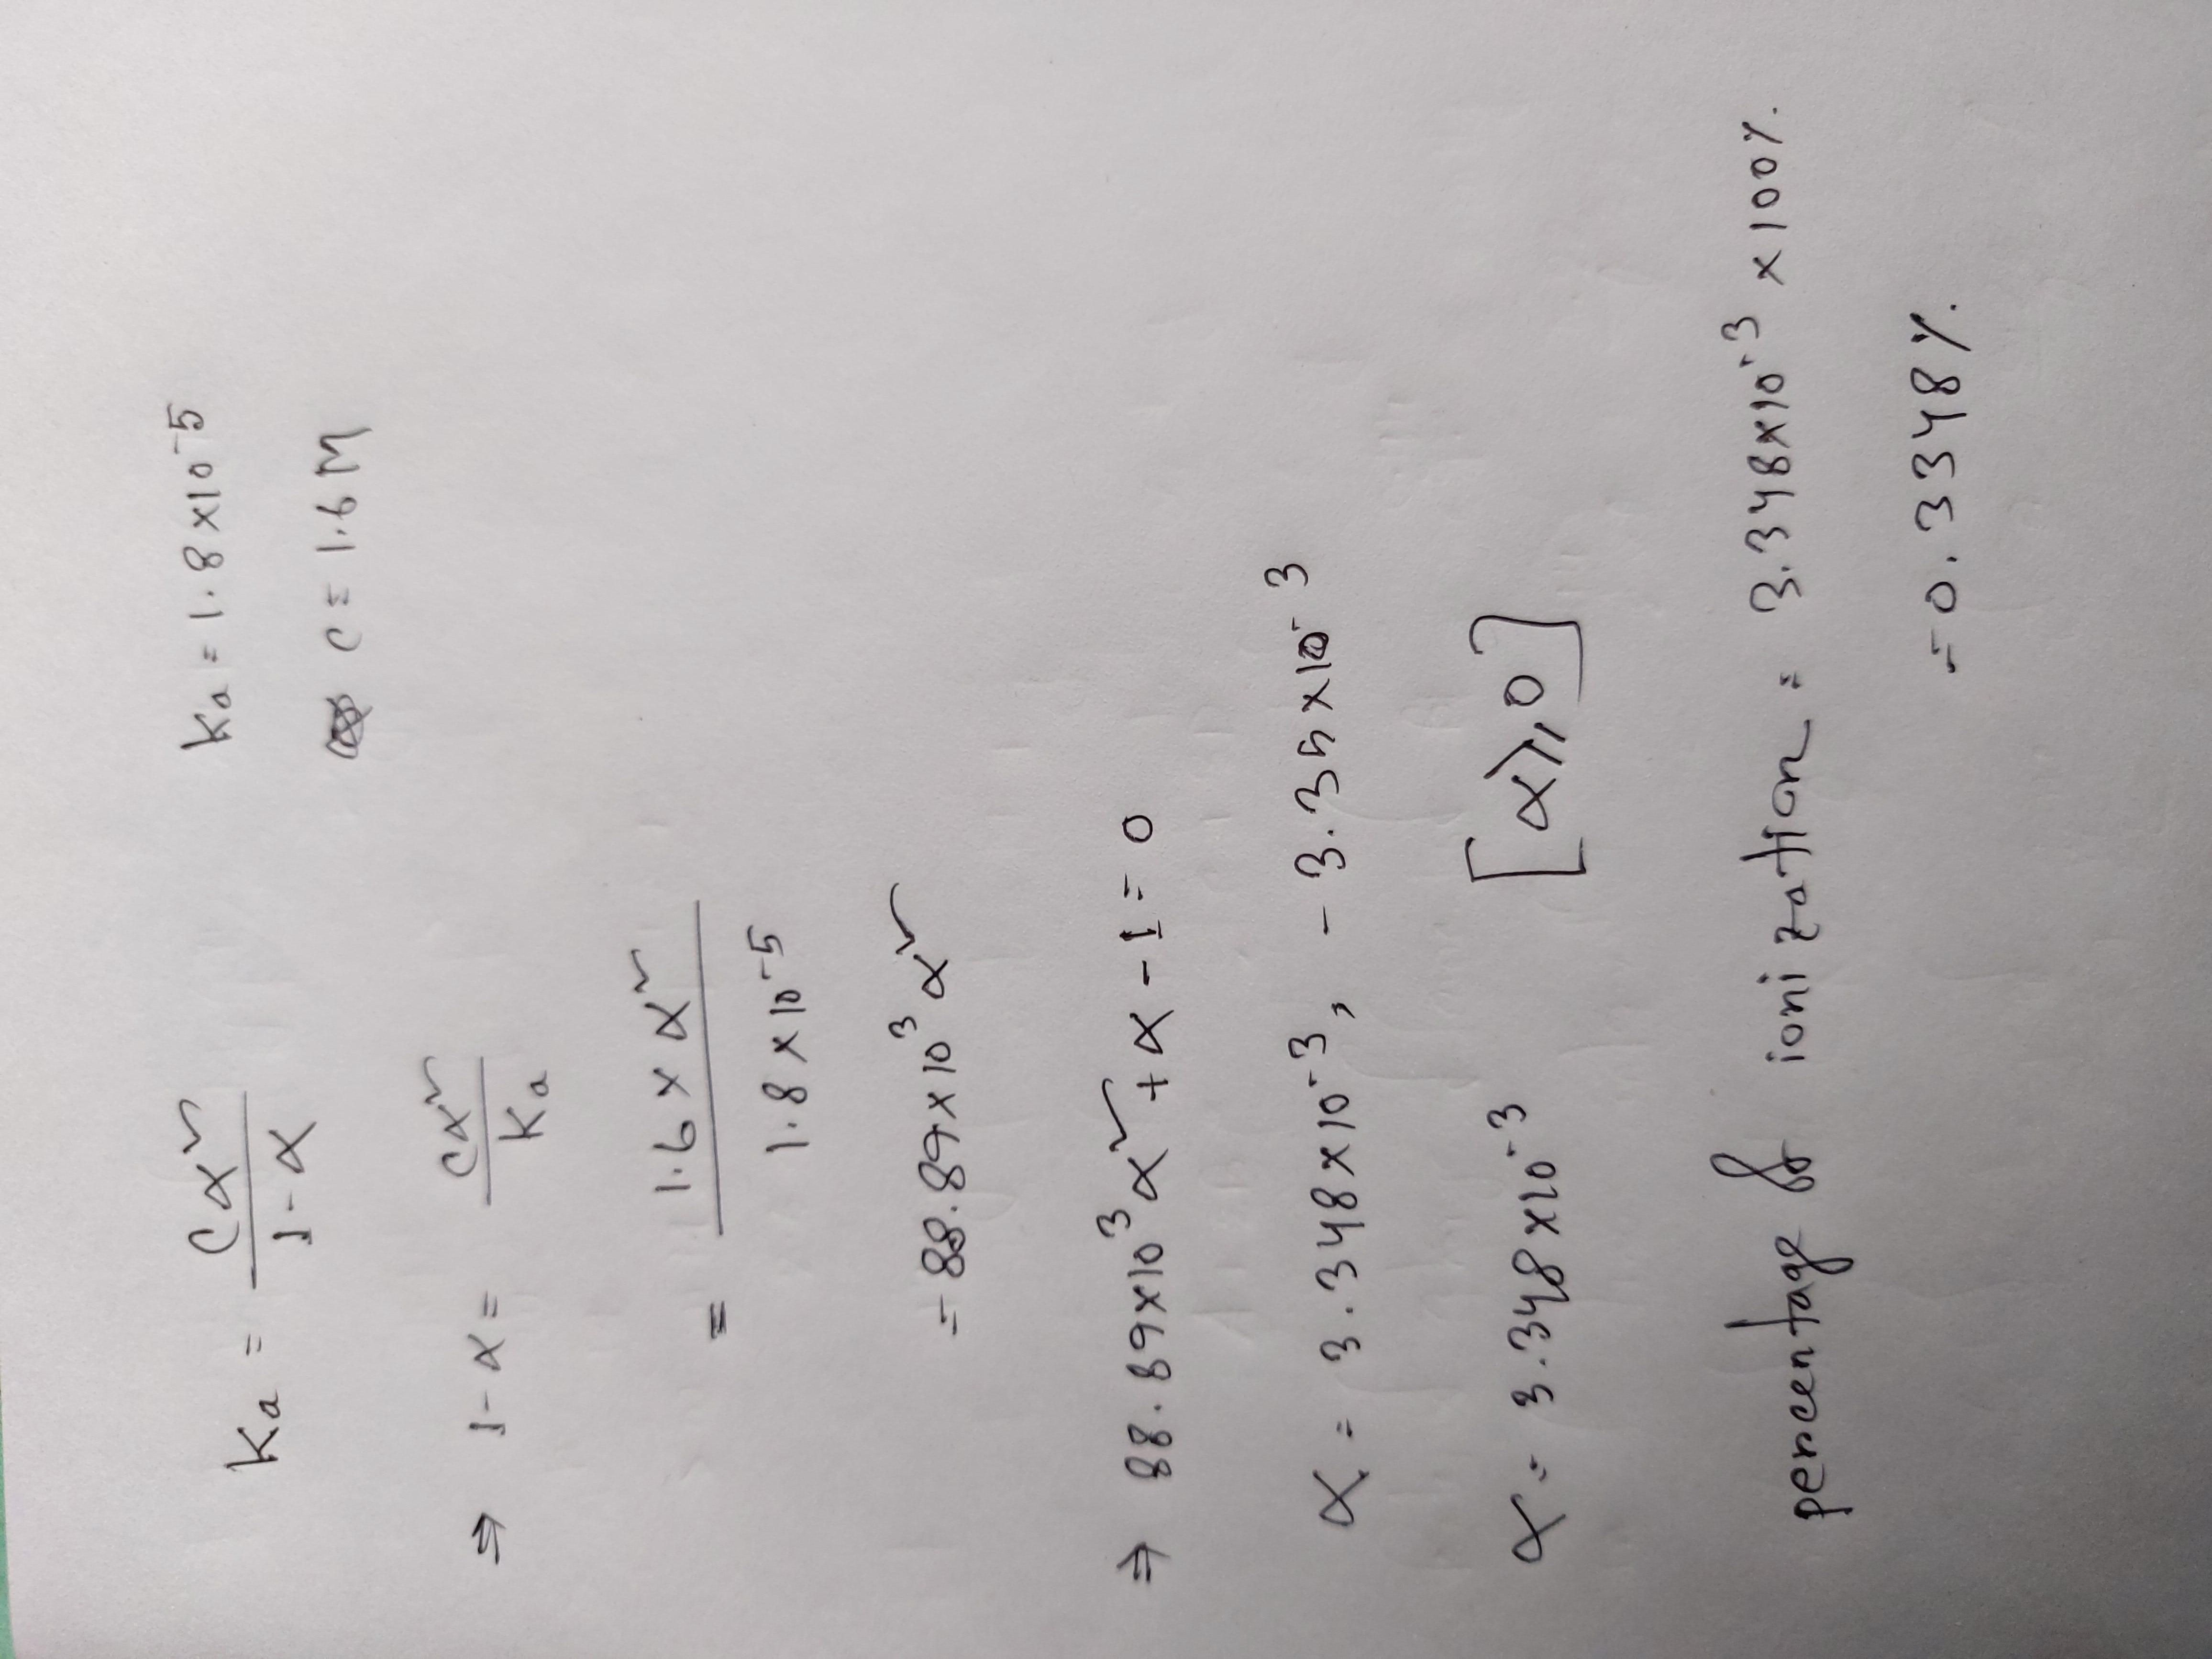 Ka = Cα² / 1-α    Ka = 1.8 x10^-5
⇒ 1-α = Cα² / Ka    C = 1.6 M
= 1.6 x α² / 1.8 x 10^-5
= 88.89x10^3 α²
⇒ 88.89x10^3 α² + α - 1 = 0
α = 3.348x10^-3, - 3.35x10^-3
α = 3.348x10^-3 [α⩾0]
percentage of ionization = 3.348x10^-3 x100%
= 0.3348%